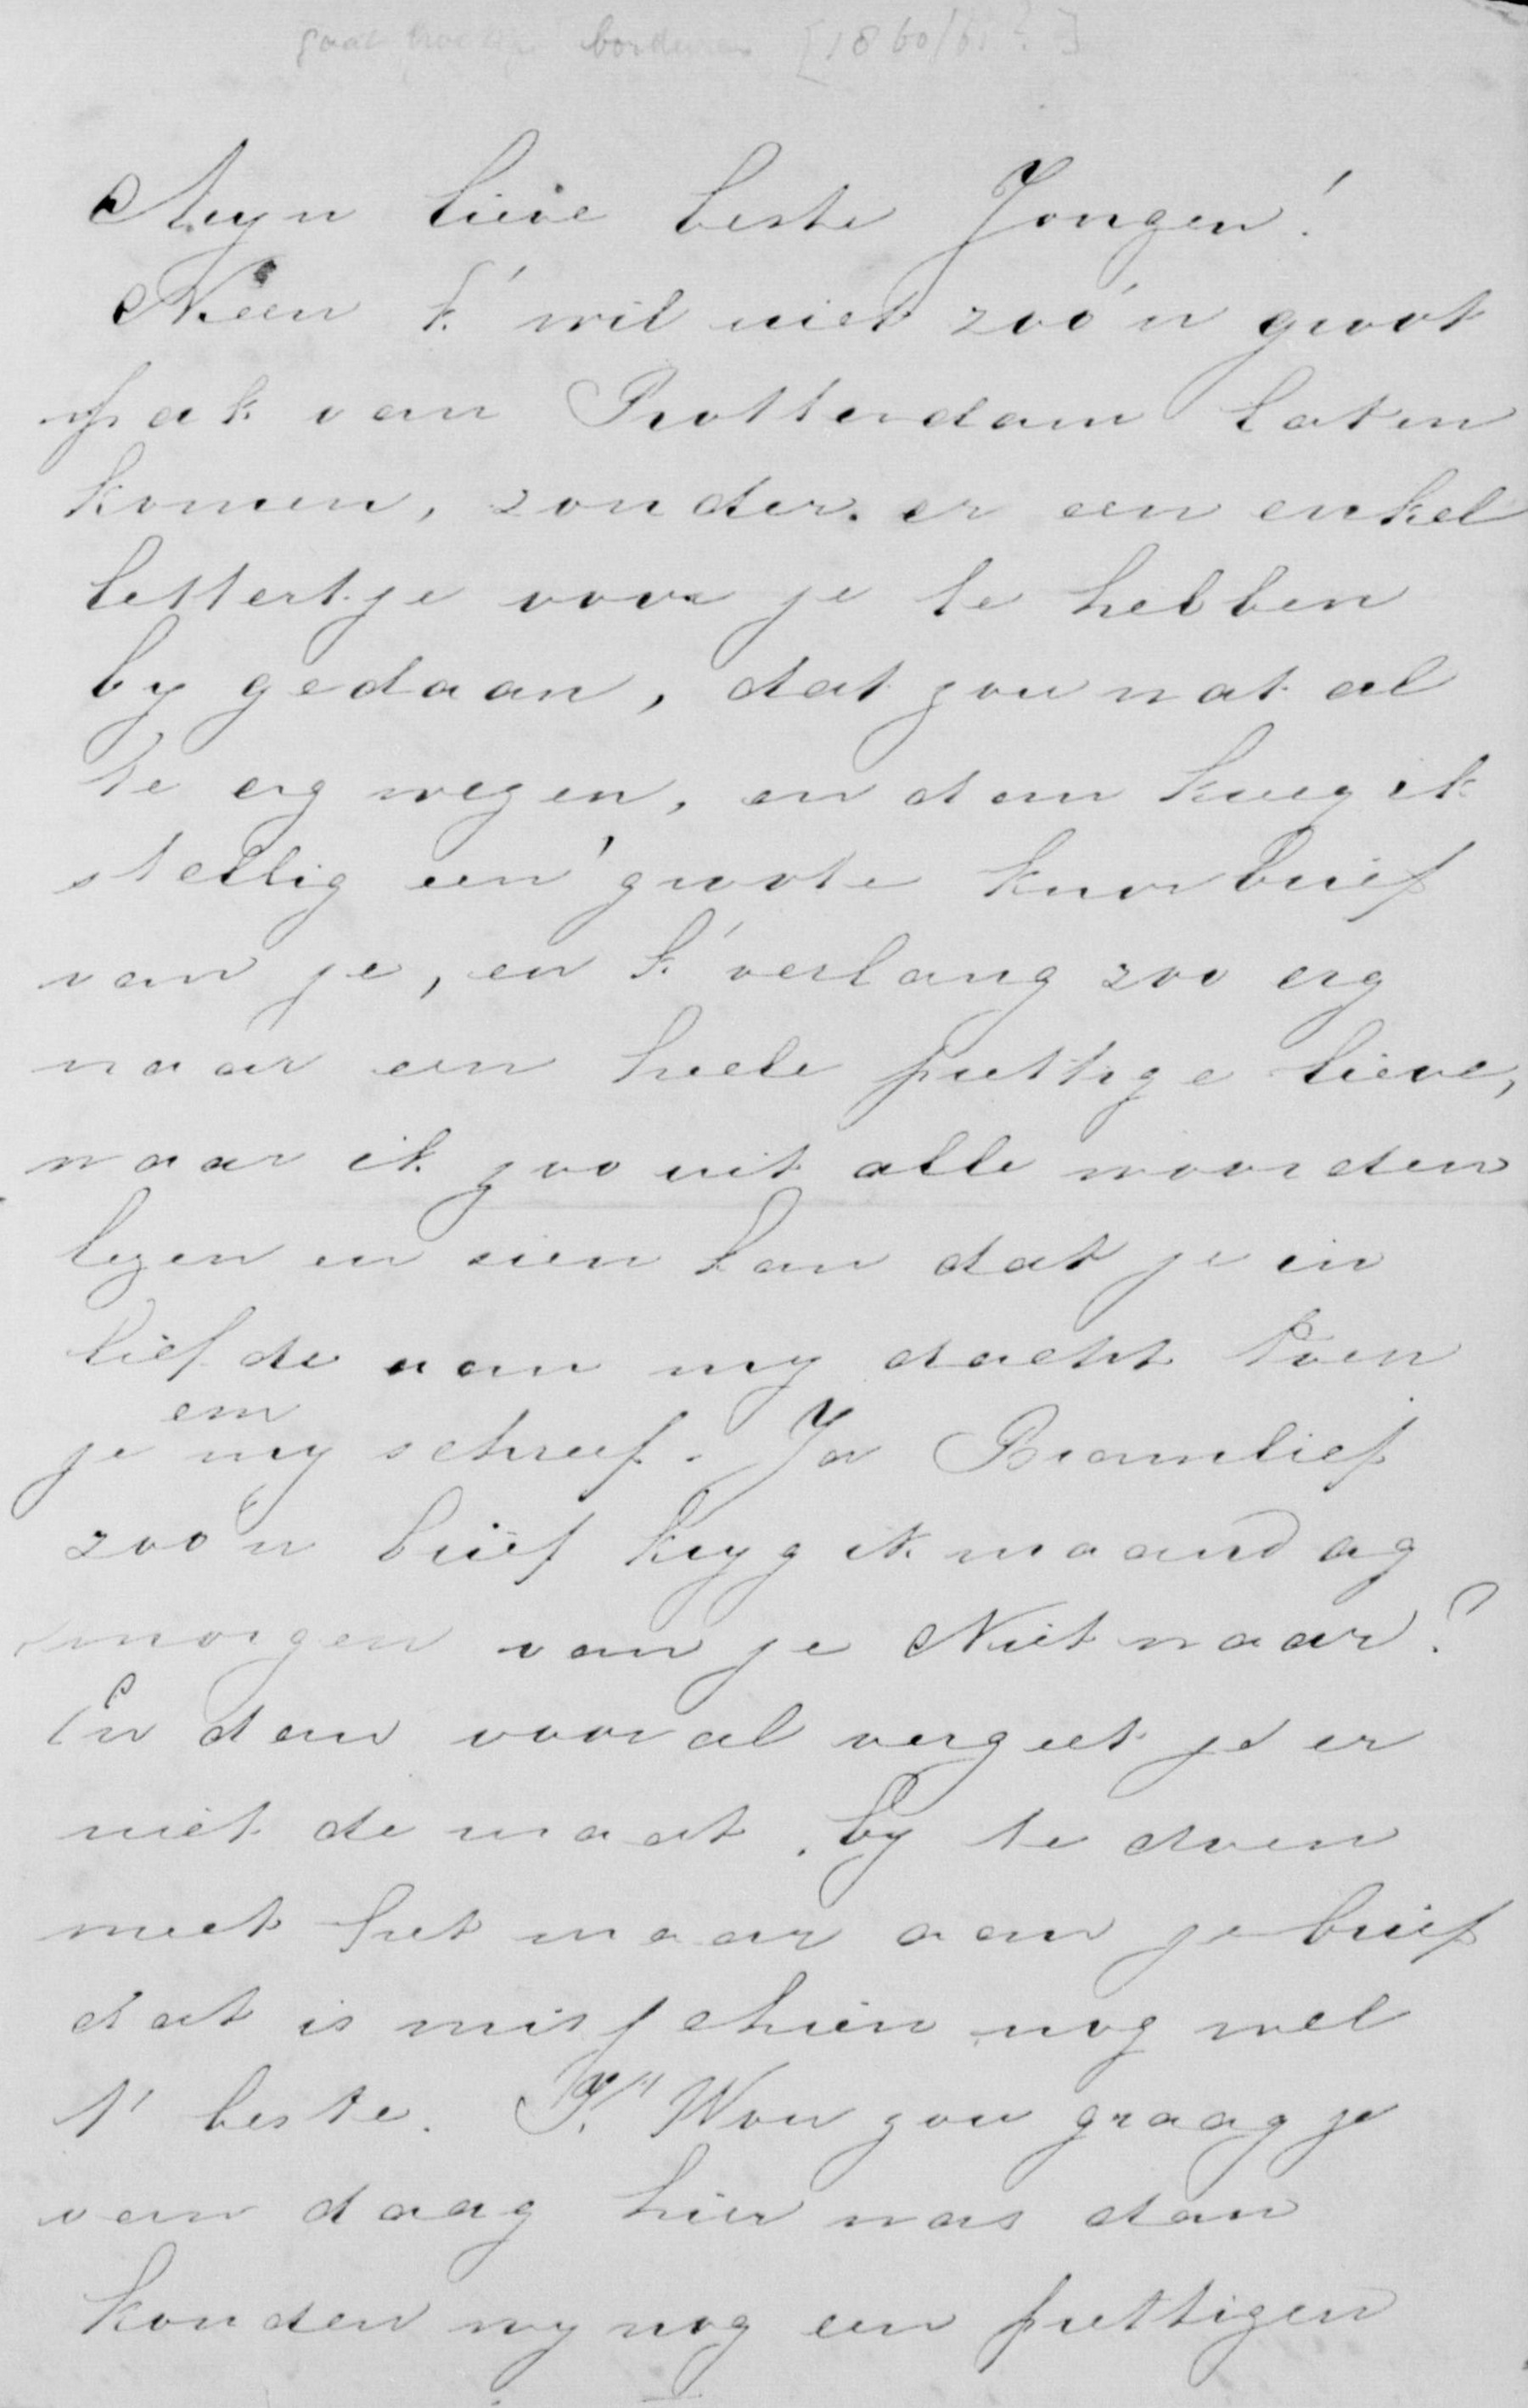 borduren [1860/61?]
Myn lieve beste Jongen!
Neen k' wil niet zoo'n groot
pak van Rotterdam laten
komen, zonder er een enkel
lettertje voor je te hebben
by gedaan, dat zou wat al
te erg wezen, en dan kreeg ik
stellig een groote knorbrief
van je, en k' verlang zoo erg
naar een heele prettige lieve,
waar ik zoo uit alle woorden
lezen en zien kan dat je in
liefde aan my dacht toen
je em my schreef. Ja Bramlief
zoo'n brief kryg ik maandag
morgen van je Niet waar?
En dan vooral vergeet je er
niet de maat by te doen
meet het maar aan je brief
dat is misschien nog wel
t' beste. K' Wou zou graag je
van daag hier was dan
konden wy nog een prettigen